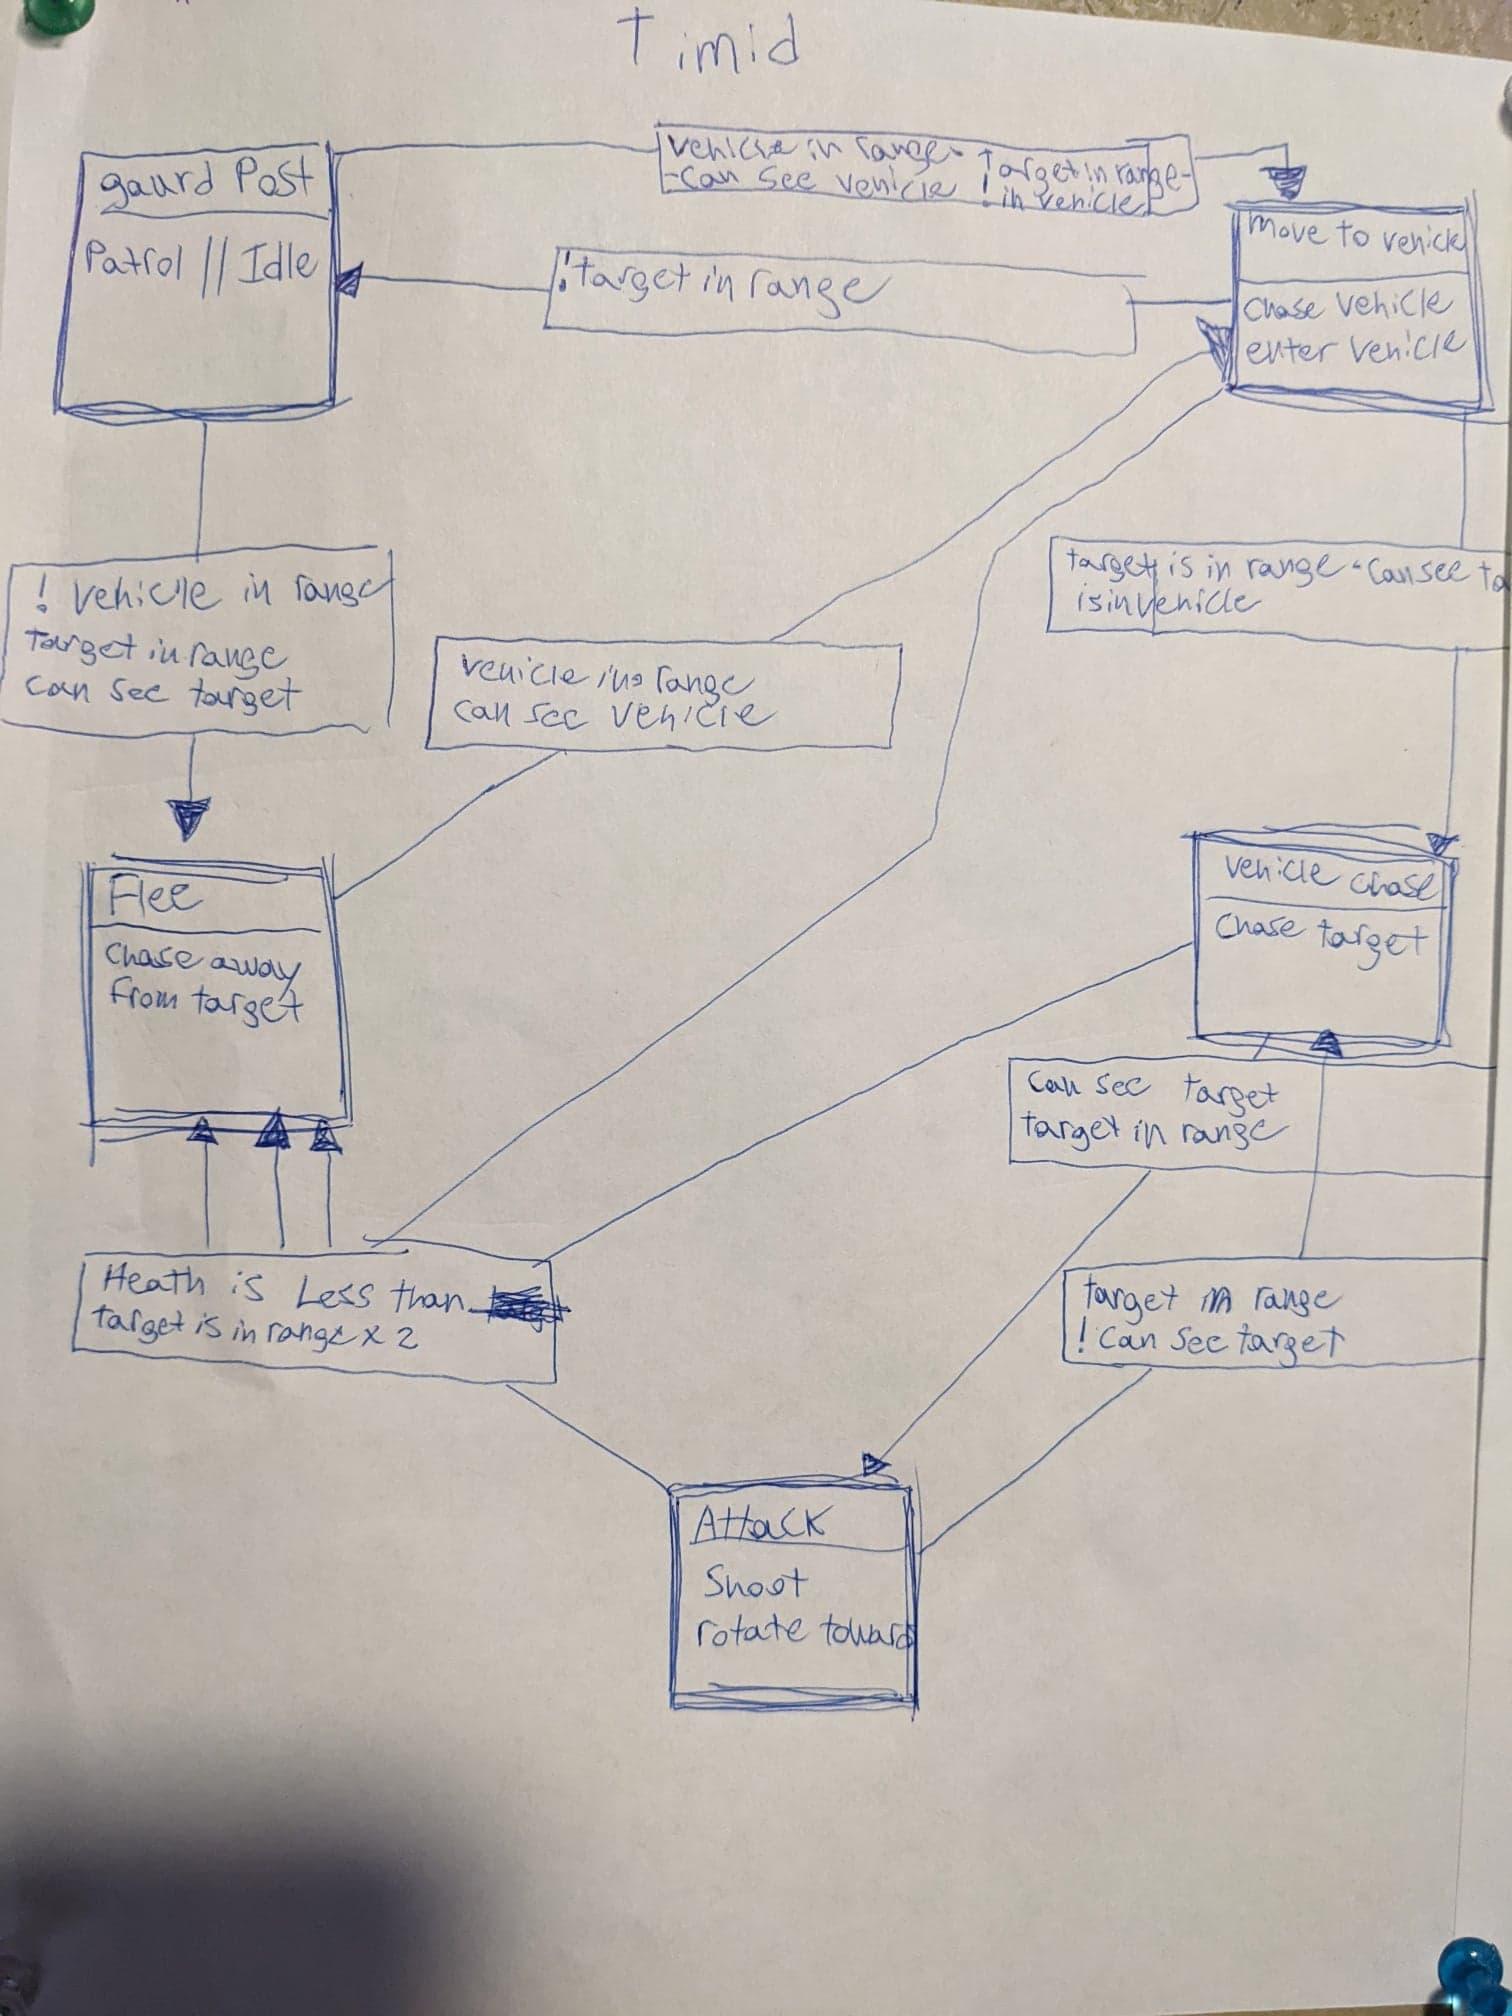 Timid
gaurd Post
Patrol || Idle
Vehicle in range- Target in range-
-Can See Vehicle ! in Vehicle
!target in range
Move to vehicle
Chase Vehicle
enter Vehicle
! Vehicle in range
target in range
Can See target
Vehicle in range
Can see Vehicle
target is in range - Can see ta
is in Vehicle
Flee
Chase away
From target
Vehicle Chase
Chase target
Can See target
target in range
Heath is Less than
target is in range x 2
target in range
! Can See target
Attack
Shoot
rotate toward